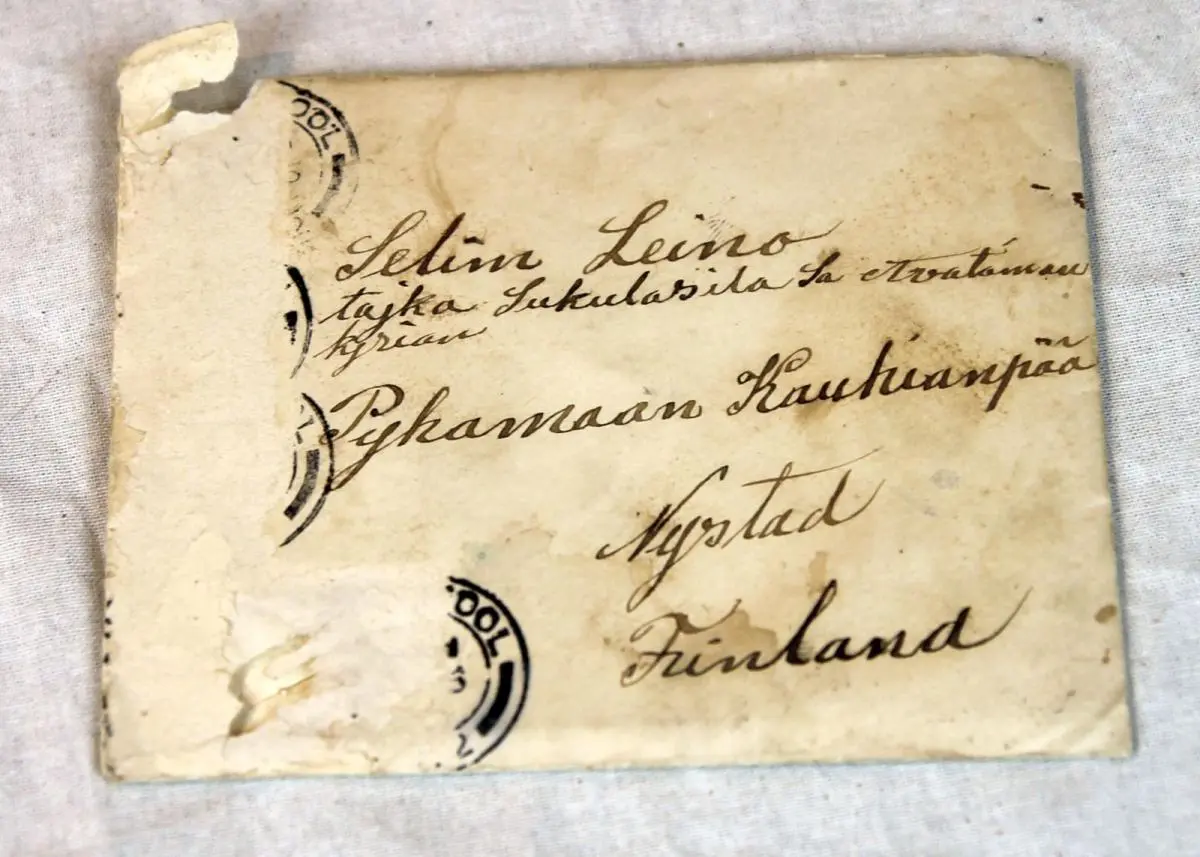 OOL
Selim Leino
tajka Sukulasila Sa Avataman
kyrian
Pyhamaan Kauhianpää
Nystad
Finland
OOL